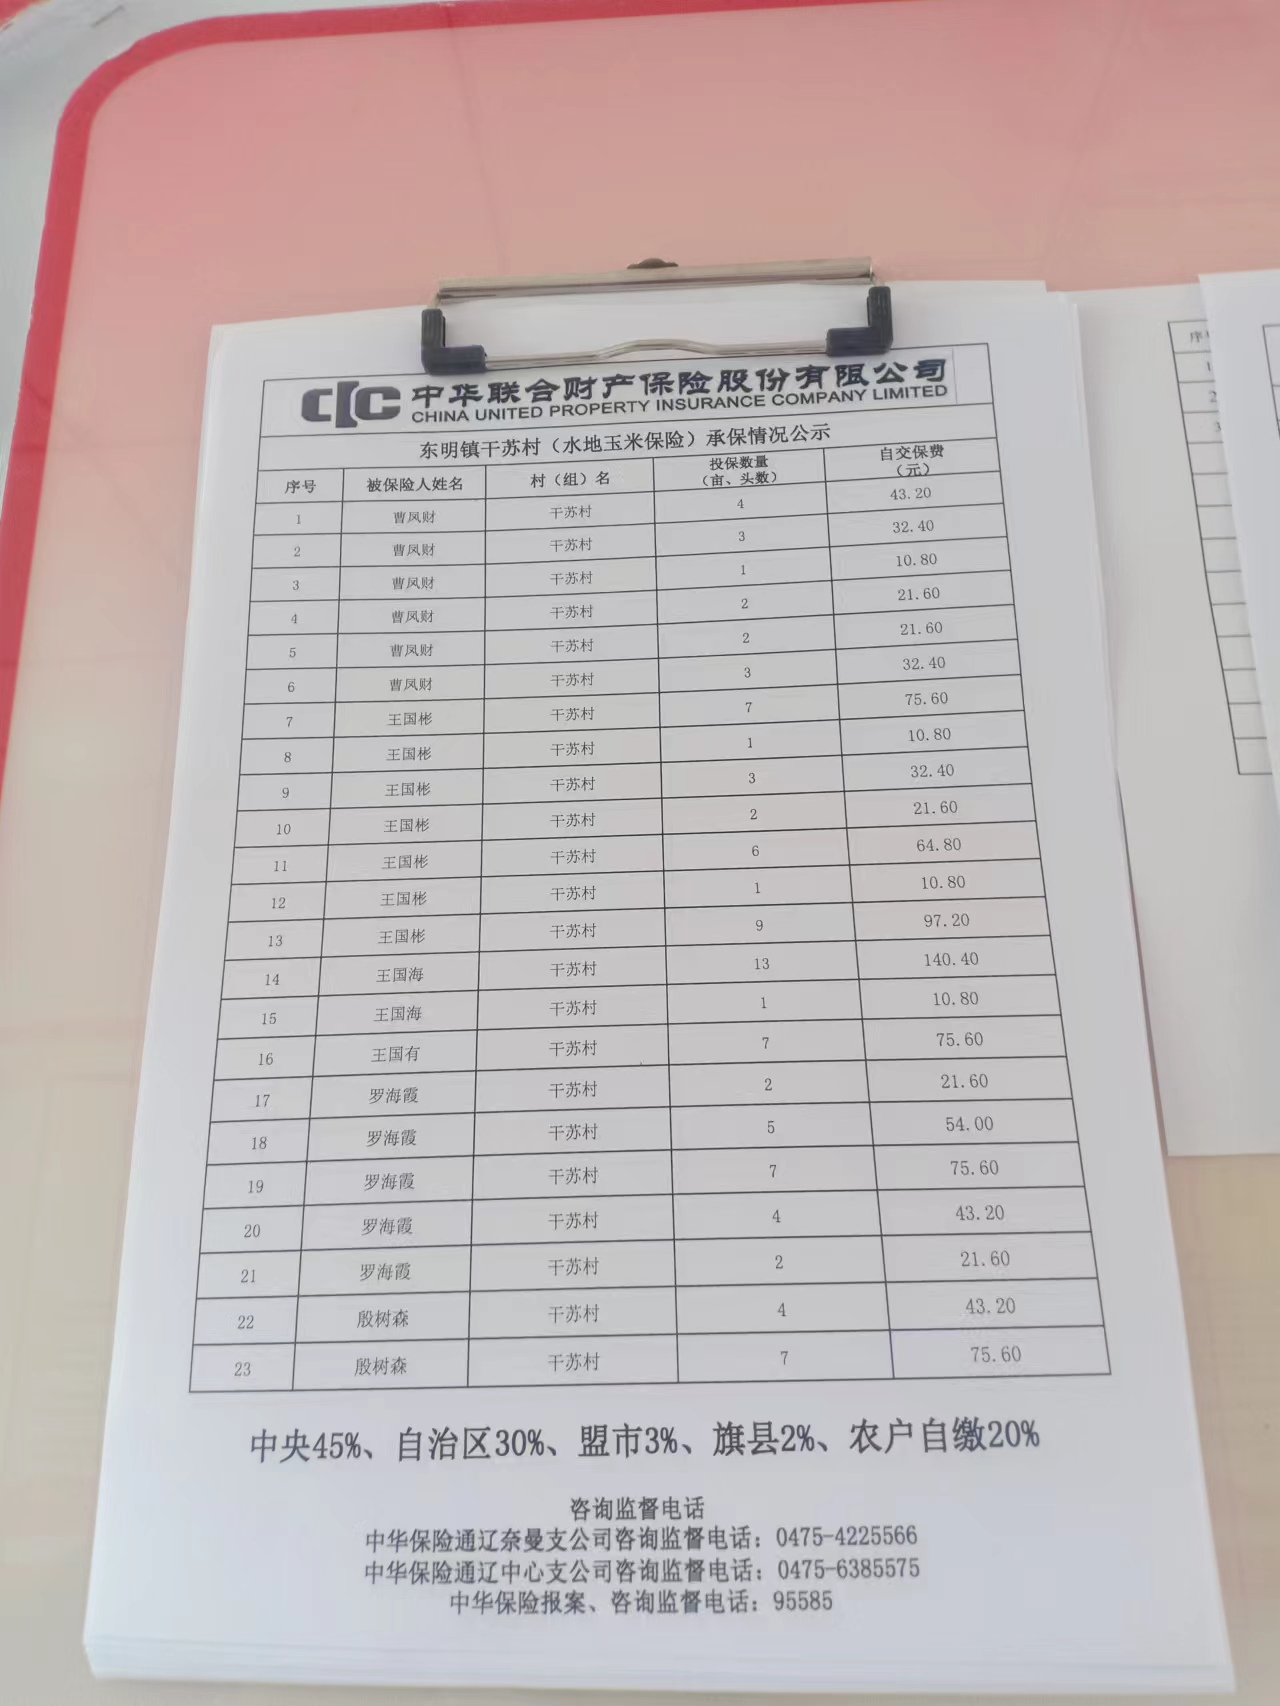 中华联合财产保险股份有限公司
CHINA UNITED PROPERTY INSURANCE COMPANY LIMITED
东明镇干苏村（水地玉米保险）承保情况公示
序号 被保险人姓名 村（组）名 投保数量（亩、头数） 自交保费（元）
1 曹凤财 干苏村 4 43.20
2 曹凤财 干苏村 3 32.40
3 曹凤财 干苏村 1 10.80
4 曹凤财 干苏村 2 21.60
5 曹凤财 干苏村 2 21.60
6 曹凤财 干苏村 3 32.40
7 王国彬 干苏村 7 75.60
8 王国彬 干苏村 1 10.80
9 王国彬 干苏村 3 32.40
10 王国彬 干苏村 2 21.60
11 王国彬 干苏村 6 64.80
12 王国彬 干苏村 1 10.80
13 王国彬 干苏村 9 97.20
14 王国海 干苏村 13 140.40
15 王国海 干苏村 1 10.80
16 王国有 干苏村 7 75.60
17 罗海霞 干苏村 2 21.60
18 罗海霞 干苏村 5 54.00
19 罗海霞 干苏村 7 75.60
20 罗海霞 干苏村 4 43.20
21 罗海霞 干苏村 2 21.60
22 殷树森 干苏村 4 43.20
23 殷树森 干苏村 7 75.60
中央45%、自治区30%、盟市3%、旗县2%、农户自缴20%
咨询监督电话
中华保险通辽奈曼支公司咨询监督电话：0475-4225566
中华保险通辽中心支公司咨询监督电话：0475-6385575
中华保险报案、咨询监督电话：95585